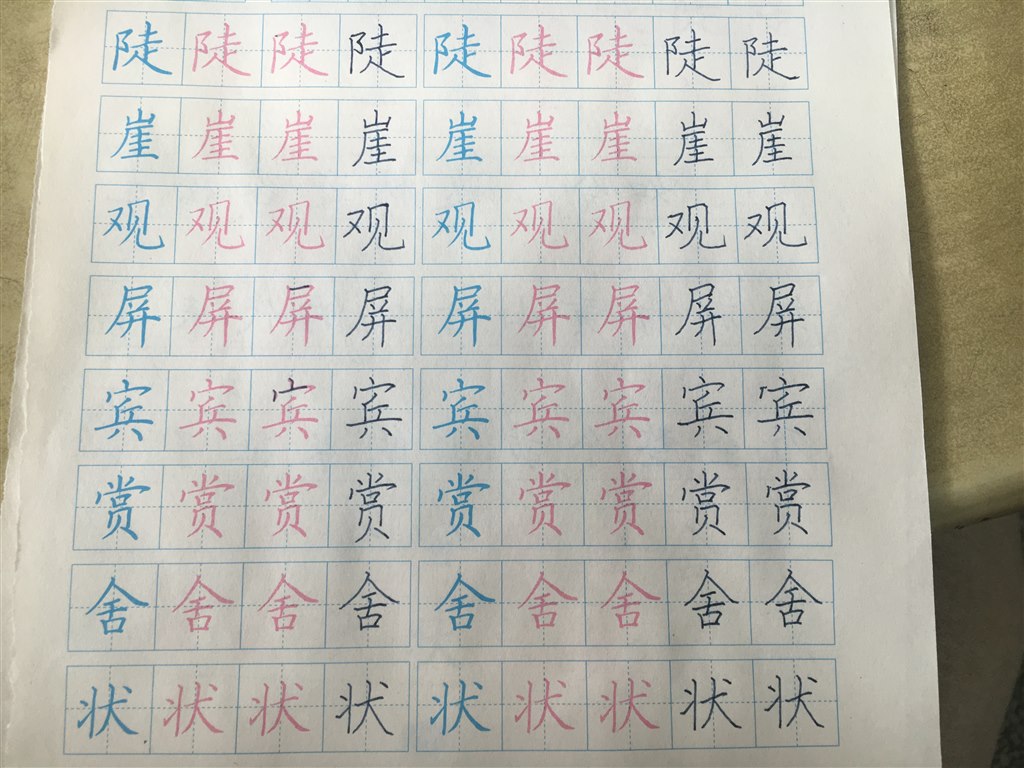 陡陡陡陡陡陡陡陡陡
崖崖崖崖崖崖崖崖崖
观观观观观观观观观
屏屏屏屏屏屏屏屏屏
宾宾宾宾宾宾宾宾宾
赏赏赏赏赏赏赏赏赏
舍舍舍舍舍舍舍舍舍
状状状状状状状状状